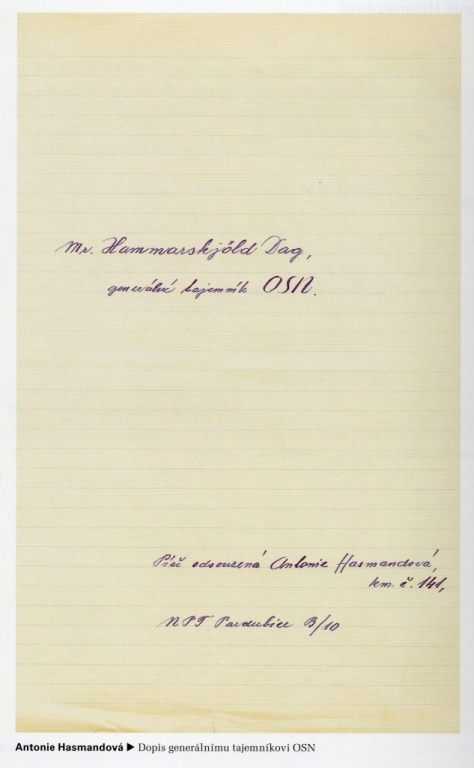 Mr. Hammarskjöld Dag,
generální tajemník OSN.
Píše odsouzená Antonie Hasmandová,
km. č. 141,
NPT Pardubice B/10
Antonie Hasmandová ▶ Dopis generálnímu tajemníkovi OSN